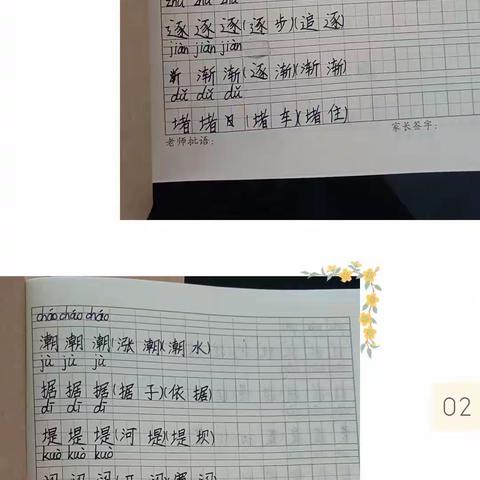 zhú zhú zhú
逐 逐 逐 (逐 步)(追 逐)
jiàn jiàn jiàn
渐 渐 (逐 渐)(渐 渐)
dǔ dǔ dǔ
堵 堵 日 (堵 车)(堵 住)
老师批语: 家长签字:
cháo cháo cháo
潮 潮 潮 (涨 潮)(潮 水)
jù jù jù
据 据 据 (据 于)(依 据)
dī dī dī
堤 堤 堤 (河 堤)(堤 坝)
kuò kuò kuò
02